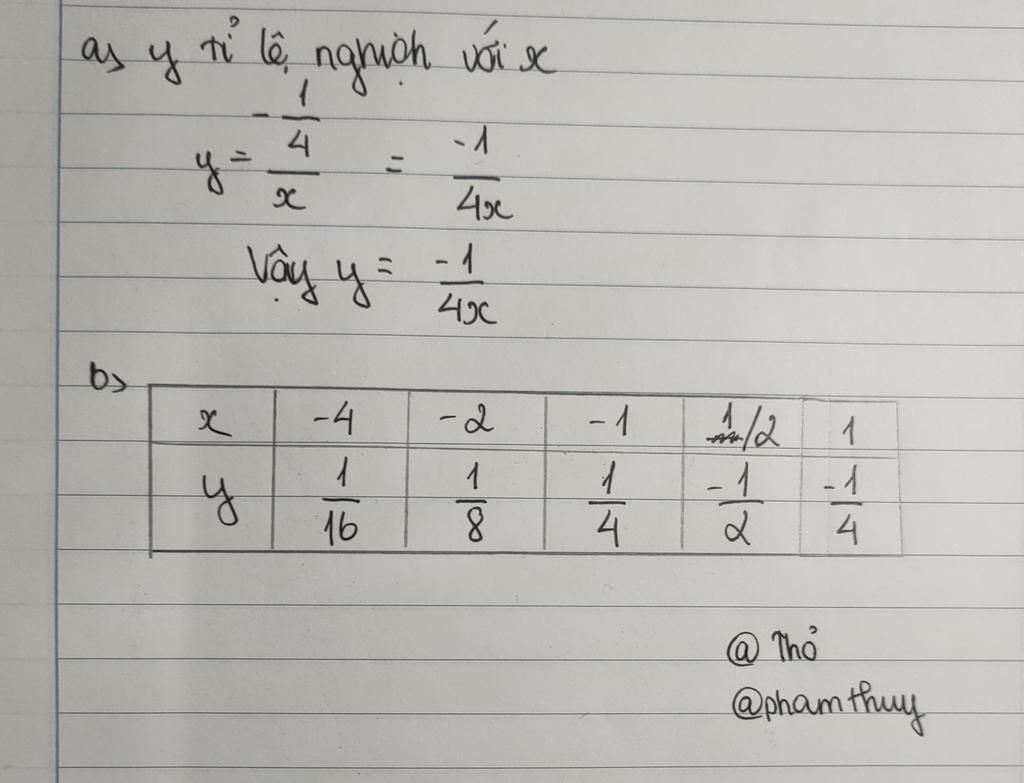 a, y tỉ lệ nghịch với x
y = -1/4 / x = -1 / 4x
Vậy y = -1 / 4x
b>
x -4 -2 -1 1/2 1
y 1/16 1/8 1/4 -1/2 -1/4
@ Thỏ
@phamthuy